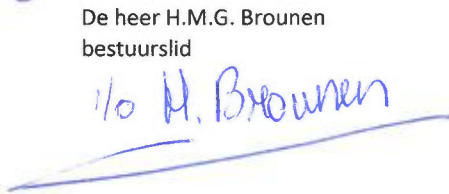 De heer H.M.G. Brounen
bestuurslid
i/o H. Brounen